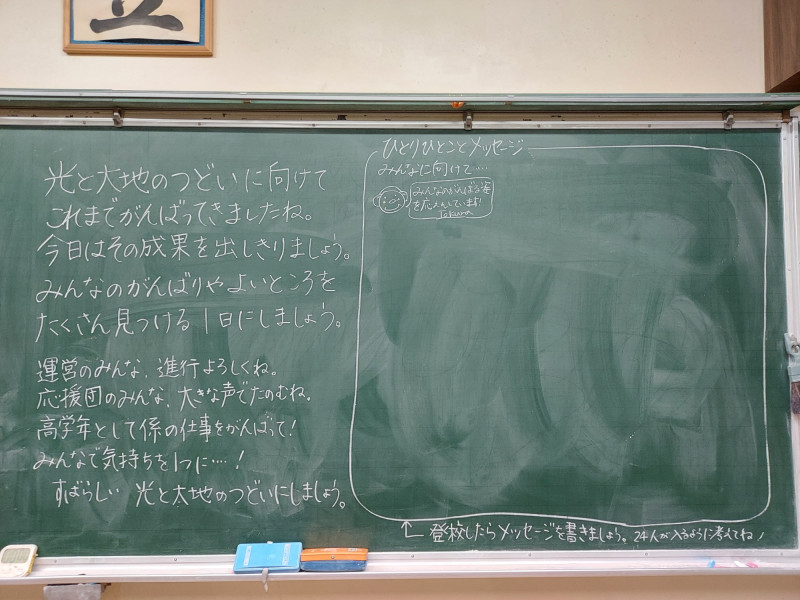 立
光と大地のつどいに向けて
これまでがんばってきましたね。
今日はその成果を出しきりましょう。
みんなのがんばりやよいところを
たくさん見つける1日にしましょう。
運営のみんな、進行よろしくね。
応援団のみんな、大きな声でたのむね。
高学年として係の仕事をがんばって!
みんなで気持ちを1つに‥‥!
すばらしい 光と大地のつどいにしましょう。
ひとりひとことメッセージ
みんなに向けて‥‥
みんなのがんばる姿
を応えんしています!
登校したらメッセージを書きましょう。24人が入るように考えてね!